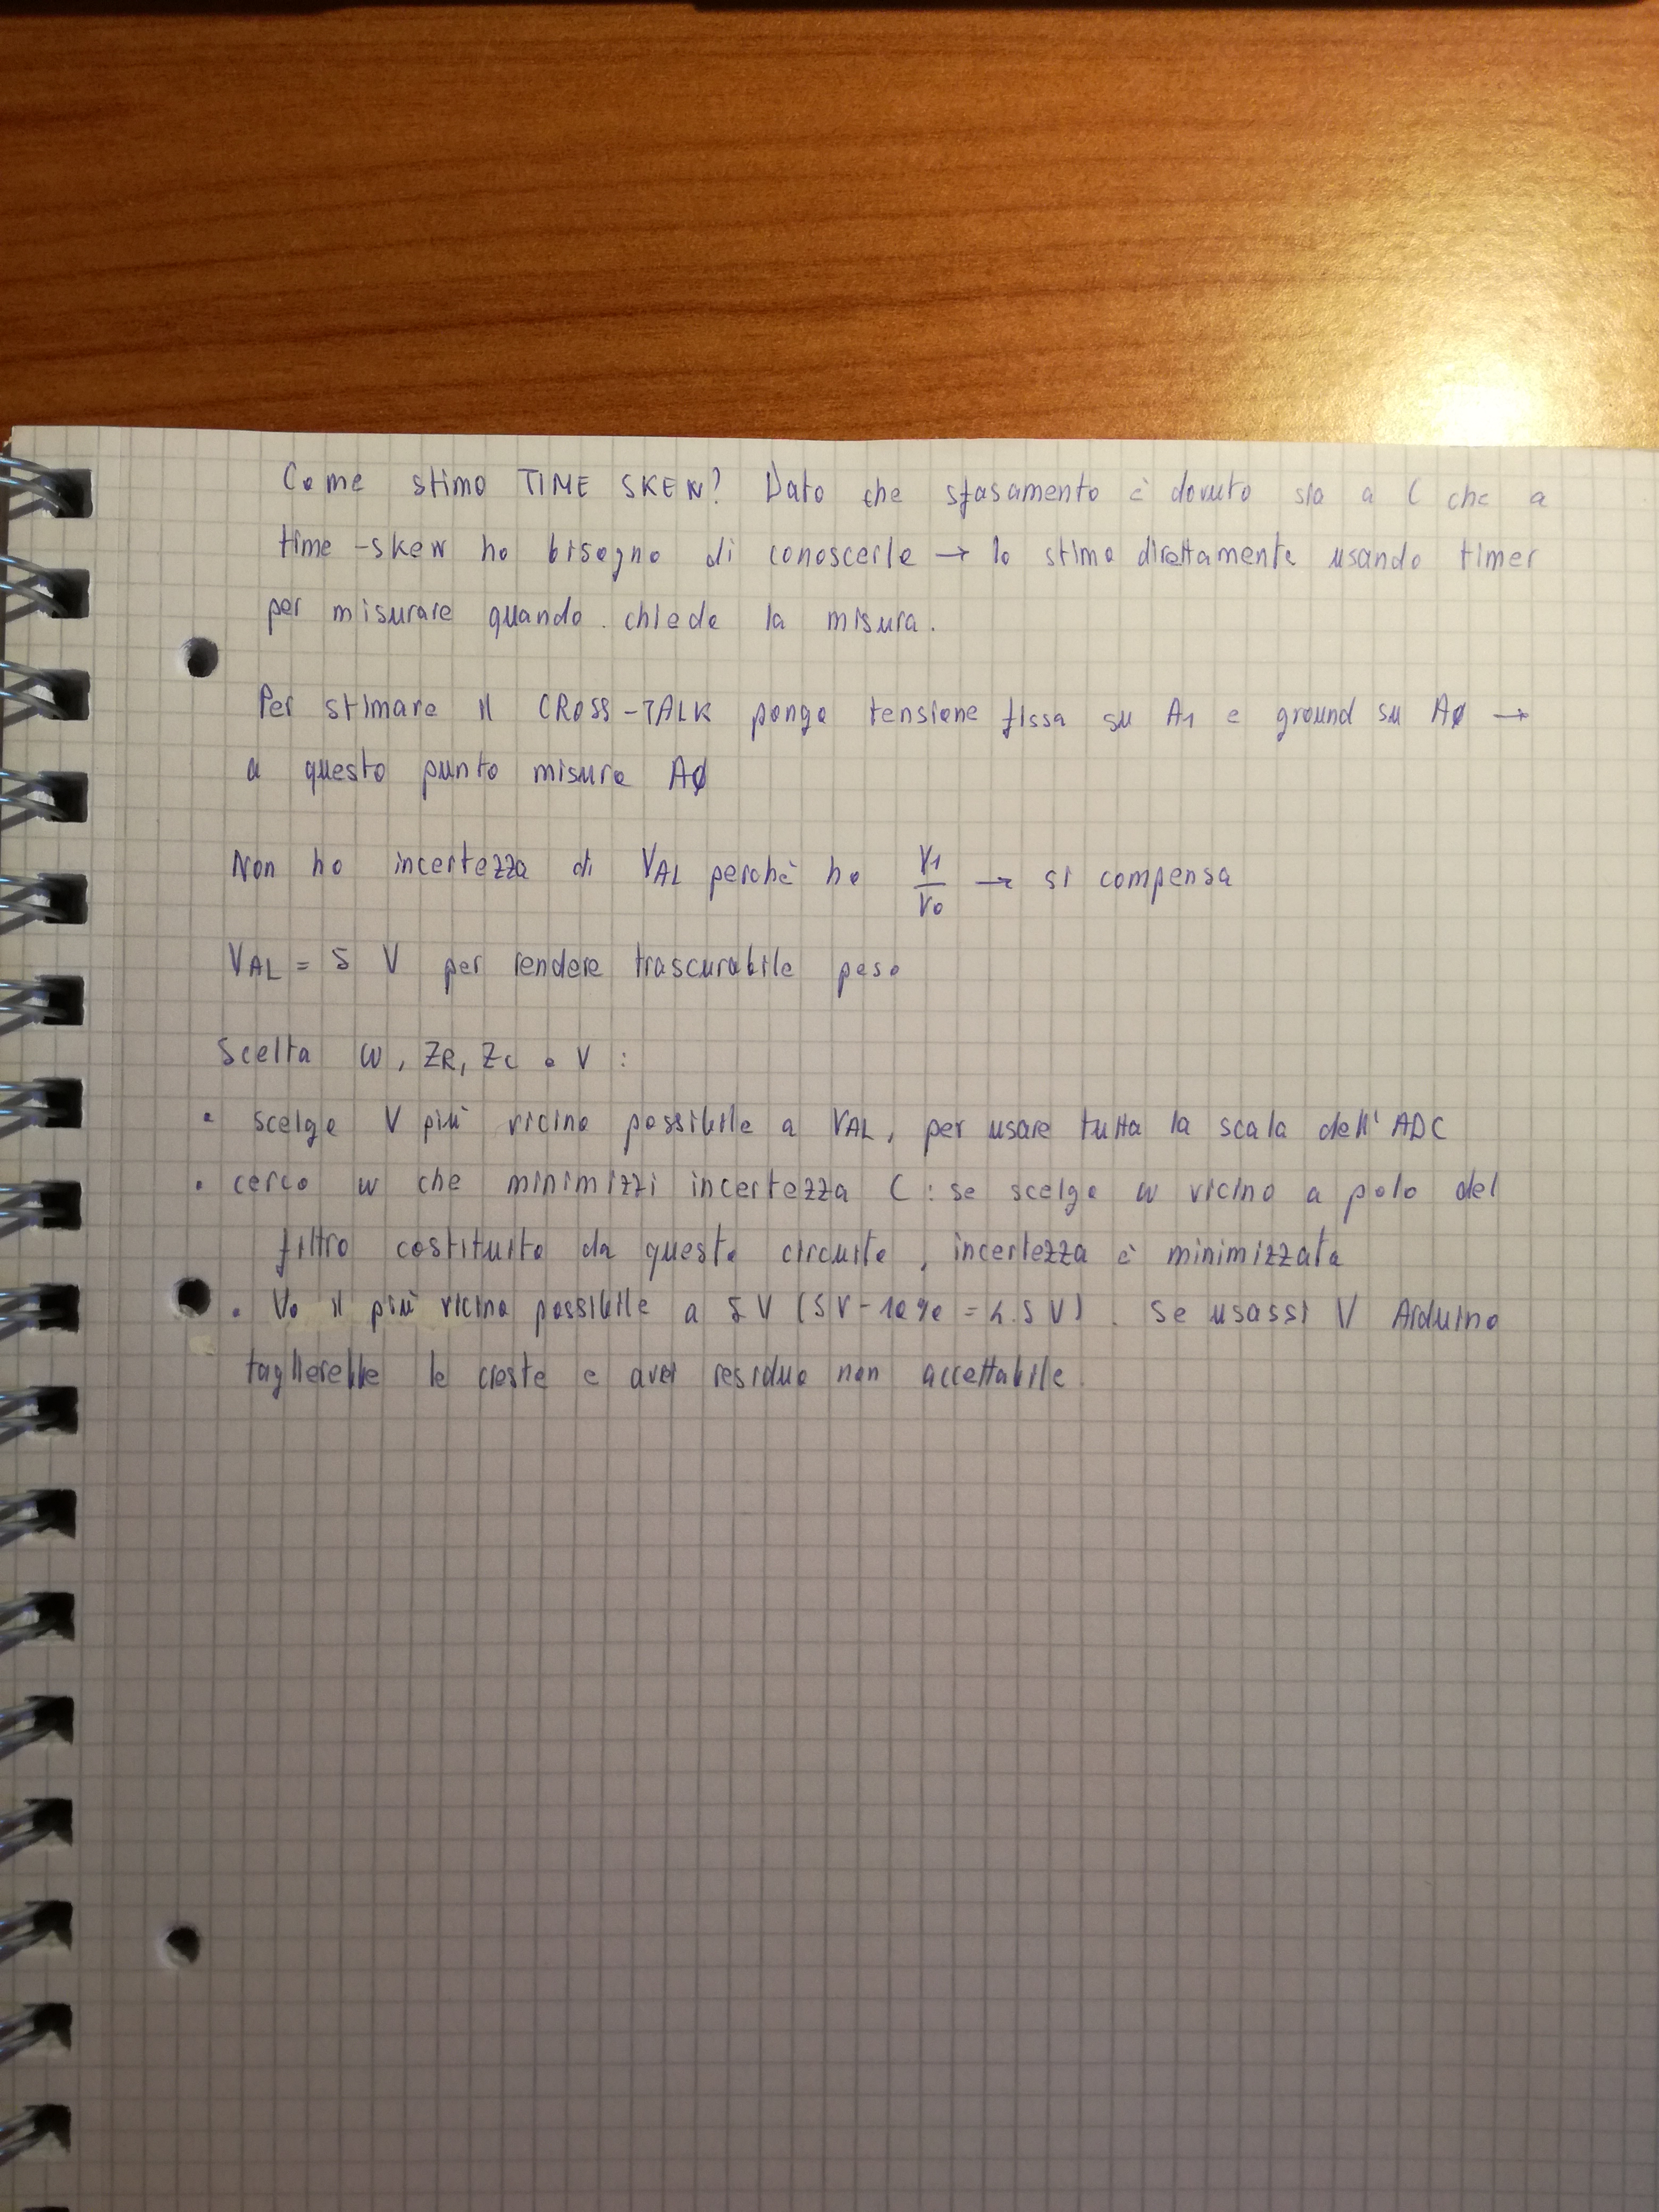 Come stimo TIME SKEW? Dato che sfasamento è dovuto sia a C che a
time-skew ho bisogno di conoscerlo → lo stimo direttamente usando timer
per misurare quando chiede la misura.
Per stimare il CROSS-TALK pongo tensione fissa su A1 e ground su A0 →
a questo punto misuro A0
Non ho incertezza di VAL perchè ho V1/V0 → si compensa
VAL = 5 V per rendere trascurabile peso
Scelta ω, ZR, ZC e V :
• scelgo V più vicino possibile a VAL, per usare tutta la scala dell'ADC
• cerco ω che minimizzi incertezza C : se scelgo ω vicino a polo del
filtro costituito da questo circuito, incertezza è minimizzata
• Vo il più vicino possibile a 5V (5V-10% = 4.5V). Se usassi V Arduino
taglierebbe le creste e avrei residuo non accettabile.